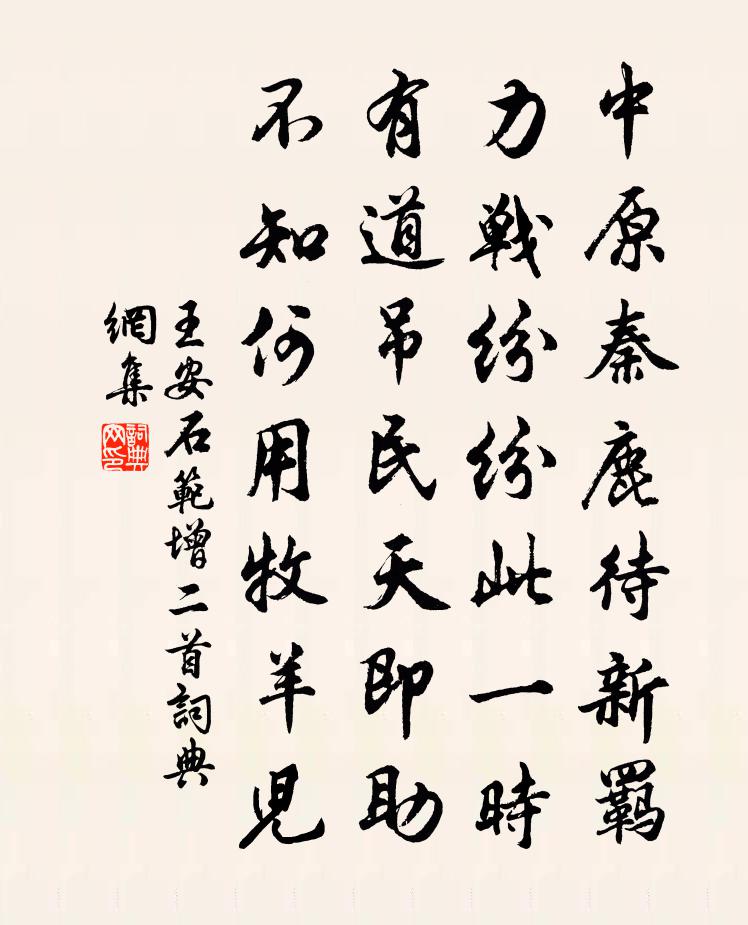 中原秦鹿待新羁
力戰紛紛此一時
有道吊民天即助
不知何用牧羊児
王安石範增二首詞典
網集
詞典網印